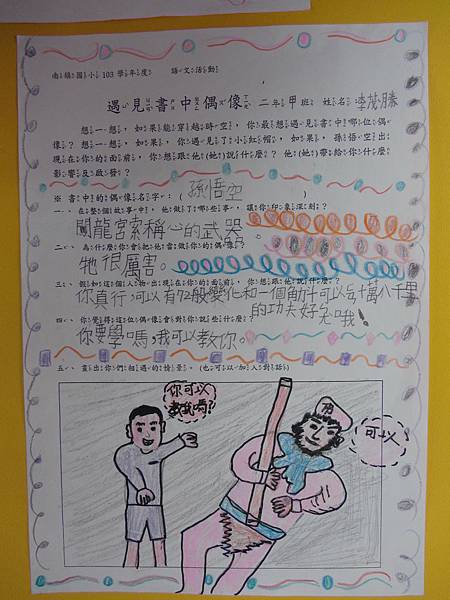 南鎮國小103學年度 語文活動
遇見書中偶像 二年甲班 姓名:李茂勝
想一想,如果能穿越時空,你最想遇見書中哪位偶
像?想一想,如果,你遇見了小紅帽,如果,孫悟空出
現在你的面前,你想跟他(她)說什麼?他(她)帶給你什麼
影響及啟發?
※ 書中的偶像名字:( 孫悟空 )
一、在整個故事中,他做了哪些事,讓你印象深刻?
鬧龍宮索稱心的武器。
二、為什麼你會把他當做你的偶像?
牠很厲害。
三、假如這個人物出現在你的面前,你想跟他說什麼?
你真行!可以有72般變化和一個觔斗可以名十萬八千里
的功夫好
四、你覺得這位偶像會對你說些什麼?
你要學嗎,我可以教你。
五、畫出你們相遇的情景。(也可以加入對話)
你可以
教我嗎?
可以